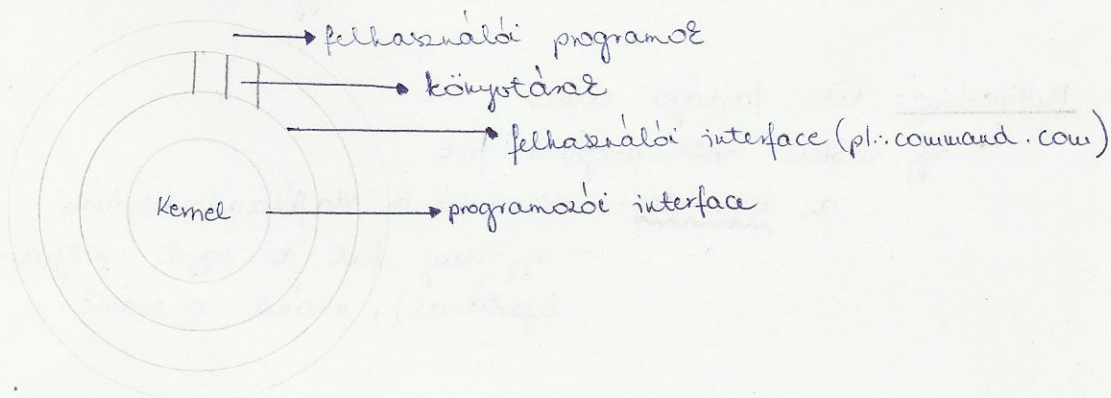 felhasználói programok
könyvtárak
felhasználói interface (pl.: command.com)
Kernel
programozói interface